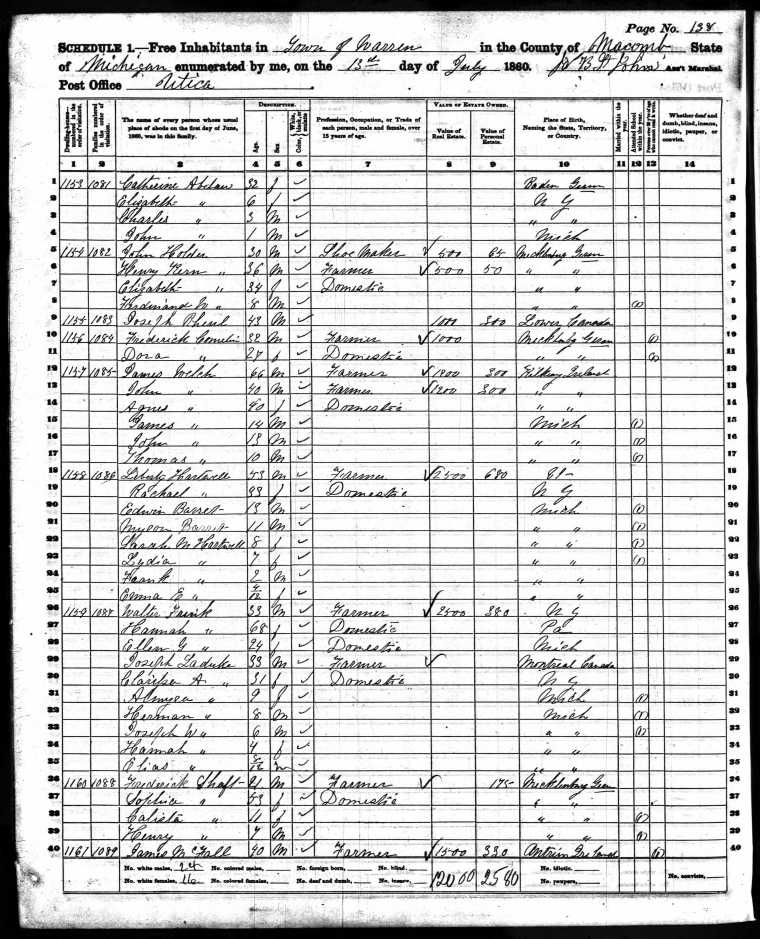 Page No. 138
SCHEDULE 1.—Free Inhabitants in Town of Warren in the County of Macomb State
of Michigan enumerated by me, on the 13th day of July 1860. Ass't Marshal.
Post Office Utica
Dwelling-houses—numbered in the order of visitation. Families numbered in the order of visitation. The name of every person whose usual place of abode on the first day of June, 1860, was in this family. DESCRIPTION. Age. Sex. Color, White, black, or mulatto. Profession, Occupation, or Trade of each person, male and female, over 15 years of age. VALUE OF ESTATE OWNED. Value of Real Estate. Value of Personal Estate. Place of Birth, Naming the State, Territory, or Country. Married within the year. Attended School within the year. Whether deaf and dumb, blind, insane, idiotic, pauper, or convict.
1 2 3 4 5 6 7 8 9 10 11 12 13 14
1 1153 1081 Catherine 32 f ✓ Baden Germ 1
2 Elizabeth " 6 f ✓ N Y 2
3 Charles " 3 m ✓ " " 3
4 John " 1 m ✓ Mich 4
5 1154 1082 John Holder 30 m ✓ Shoe Maker ✓ 500 65 Mecklenburg Germ 5
6 Henry Kern " 36 m ✓ Farmer ✓ 500 50 " " 6
7 Elizabeth " 34 f ✓ Domestic " " 7
8 Ferdinand W " 8 m ✓ " " (1) 8
9 1155 1083 Joseph 43 m ✓ 1000 300 Lower Canada 9
10 1156 1084 Frederick 32 m ✓ Farmer ✓ 1000 Mecklenburg Germ 10
11 Dora " 27 f ✓ Domestic " " 11
12 1157 1085 James Welch 66 m ✓ Farmer ✓ 300 Ireland 12
13 John " 40 m ✓ Farmer ✓ 300 " " 13
14 Agnes " 40 f ✓ Domestic " " 14
15 James " 14 m ✓ Mich (1) 15
16 John " 13 m ✓ " " (1) 16
17 Thomas " 10 m ✓ " " (1) 17
18 1158 1086 Liberty Hartwell 53 m ✓ Farmer ✓ 2500 680 18
19 Rachael " 33 f ✓ Domestic N Y 19
20 Edwin Barrett 13 m ✓ Mich (1) 20
21 Myron Barrett 11 m ✓ " " (1) 21
22 Sarah M Hartwell 8 f ✓ " " (1) 22
23 Lydia " 7 f ✓ " " (1) 23
24 Frank " 2 m ✓ " " 24
25 Emma E " f ✓ " " 25
26 1159 1087 Walter 33 m ✓ Farmer ✓ 2500 380 N Y 26
27 Hannah " 68 f ✓ Domestic Pa 27
28 Ellen G " 24 f ✓ Domestic Mich 28
29 Joseph Laduke 33 m ✓ Farmer ✓ Montreal Canada 29
30 A " 31 f ✓ Domestic N Y 30
31 Almyra " 9 f ✓ Mich (1) 31
32 Herman " 8 m ✓ Mich (1) 32
33 Joseph W " 6 m ✓ " " (1) 33
34 Hannah " 4 f ✓ " " 34
35 Elias " m ✓ " " 35
36 1160 1088 Frederick Shaft m ✓ Farmer ✓ 175 Mecklenburg Germ 36
37 Sophia " 53 f ✓ Domestic " " 37
38 Calista " 11 f ✓ " " (1) 38
39 Henry " 7 m ✓ " " (1) 39
40 1161 1089 James McFall 40 m ✓ Farmer ✓ 1500 330 Antrim Ireland 40
No. white males, 24 No. colored males, No. foreign born, No. blind, 12000 2580 No. idiotic, No. convicts,
No. white females, 16 No. colored females, No. deaf and dumb, No. insane, No. paupers,